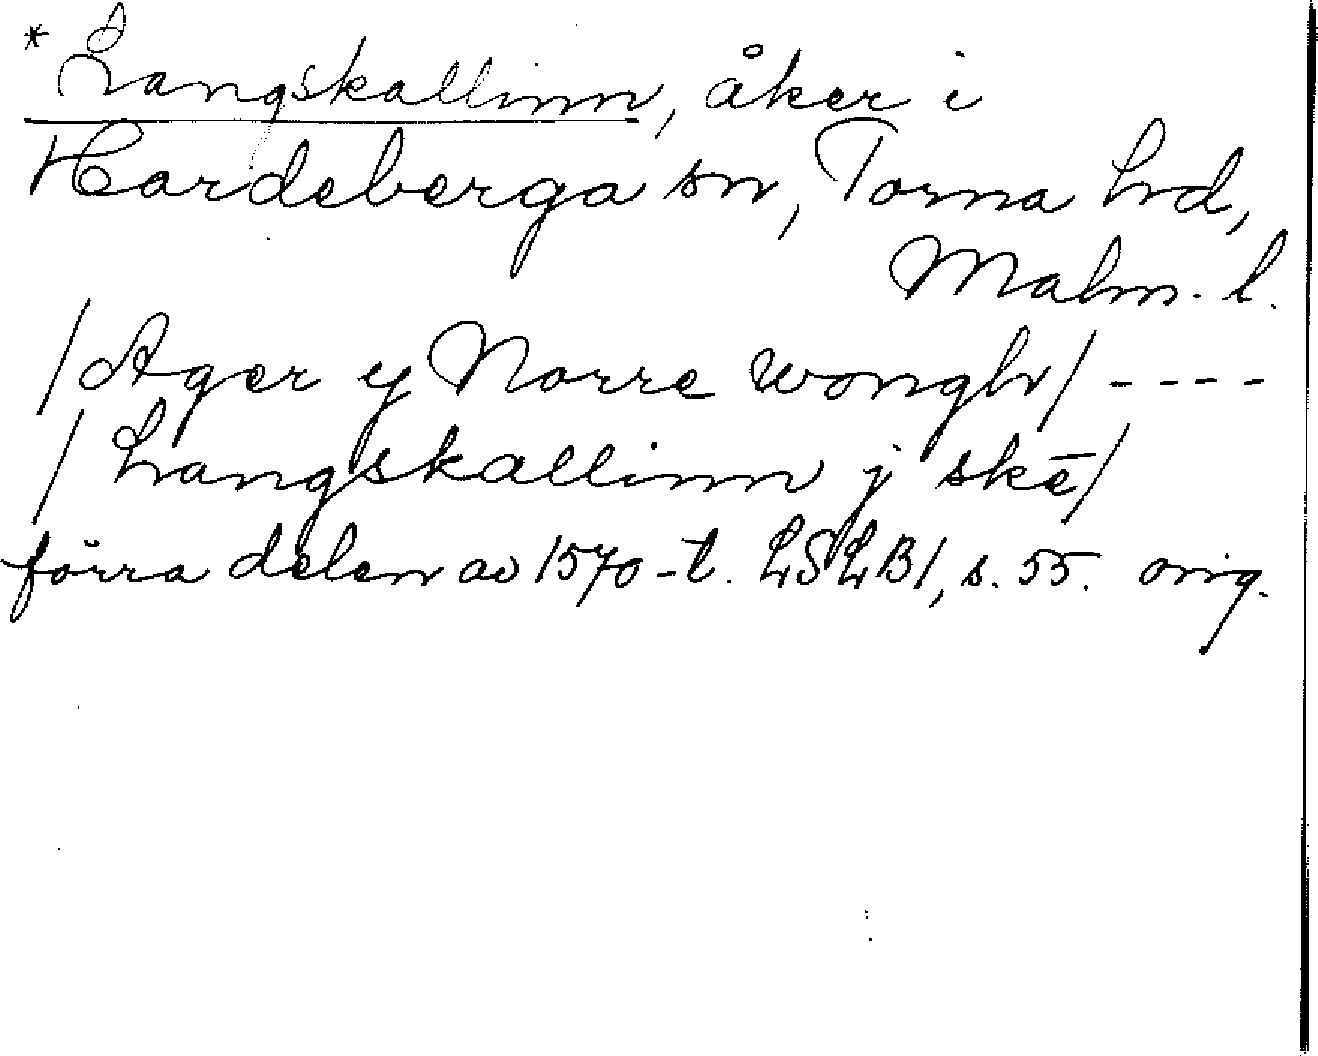 * Langskallinn, åker i
Hardeberga sn, Torna hd,
Malm. l.
/Ager y Norre wongh/ ----
/Langskallinn j skē/
förra delen av 1570-t. LSLB1, s. 55. orig.